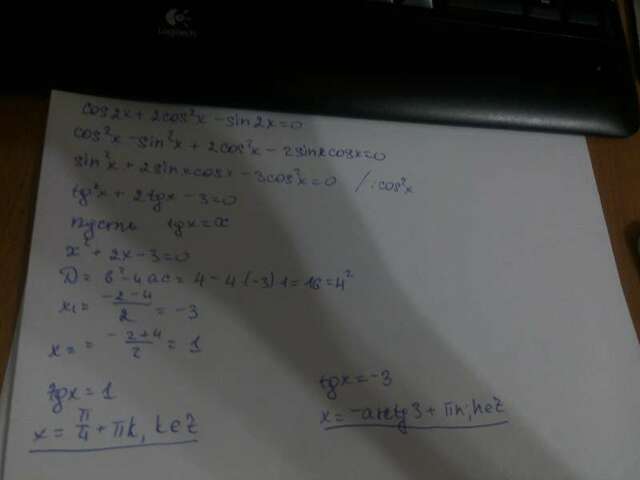 Logitech
cos2x + 2cos²x - sin2x = 0
cos²x - sin²x + 2cos²x - 2sinxcosx = 0
sin²x + 2sinxcosx - 3cos²x = 0 /:cos²x
tg²x + 2tgx - 3 = 0
пусть tgx = x
x² + 2x - 3 = 0
D = b² - 4ac = 4 - 4·(-3)·1 = 16 = 4²
x₁ = (-2-4)/2 = -3
x = = (-2+4)/2 = 1
tgx = 1 tgx = -3
x = π/4 + πk, k∈Z x = -arctg3 + πn, n∈Z